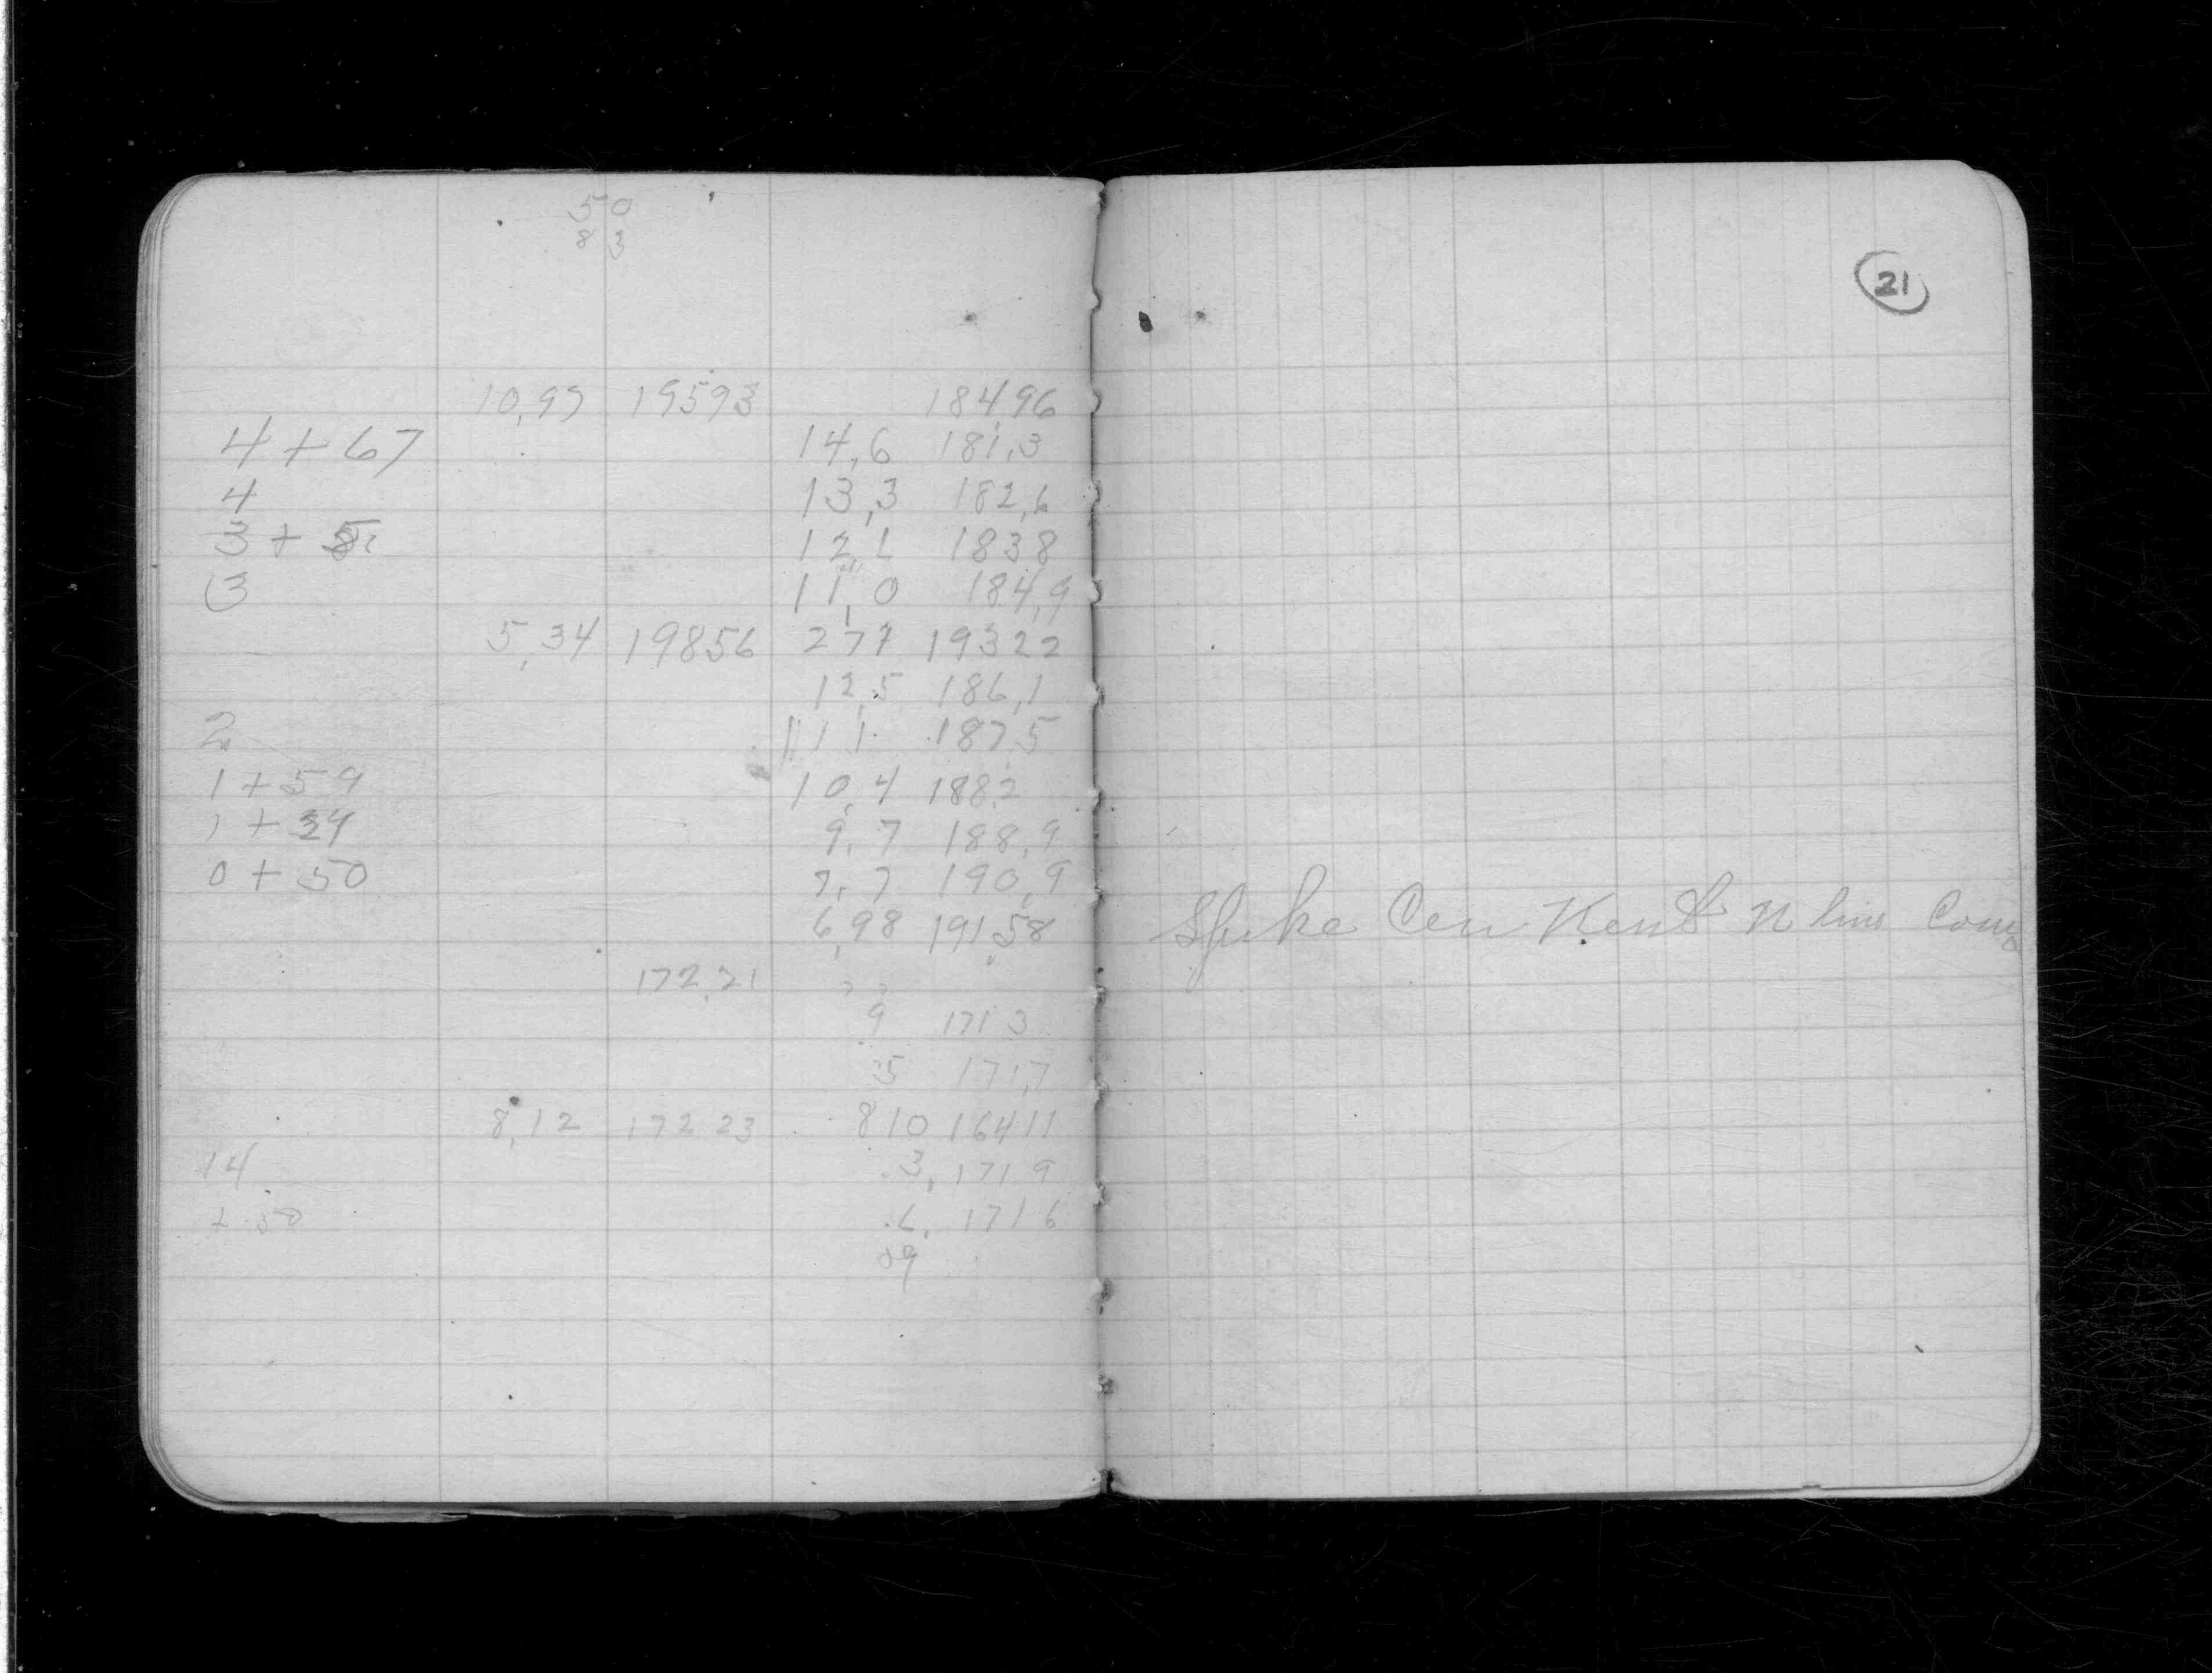 50
83
10,97 19593 184,96
4+67 14,6 181,3
4 13,3 182,6
3+5 12,1 183 8
3 11,0 184,9
5,34 19856 277 19322
12,5 186,1
2 11 1 187,5
1+59 10,4 188,2
1+34 9,7 188,9
0+50 7,7 190,9
6,98 191,58
172,21
9 171 3
5 171,7
8,12 172 23 8 10 164 11
14 3, 171 9
+50 .6, 171 6
21
Spike Cen Kent N line Cong